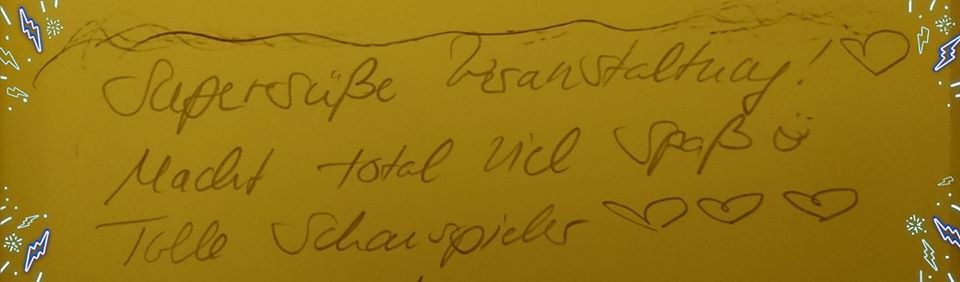 Supersüße Veranstaltung! ♡
Macht total viel Spaß ☺
Tolle Schauspieler ♡ ♡ ♡